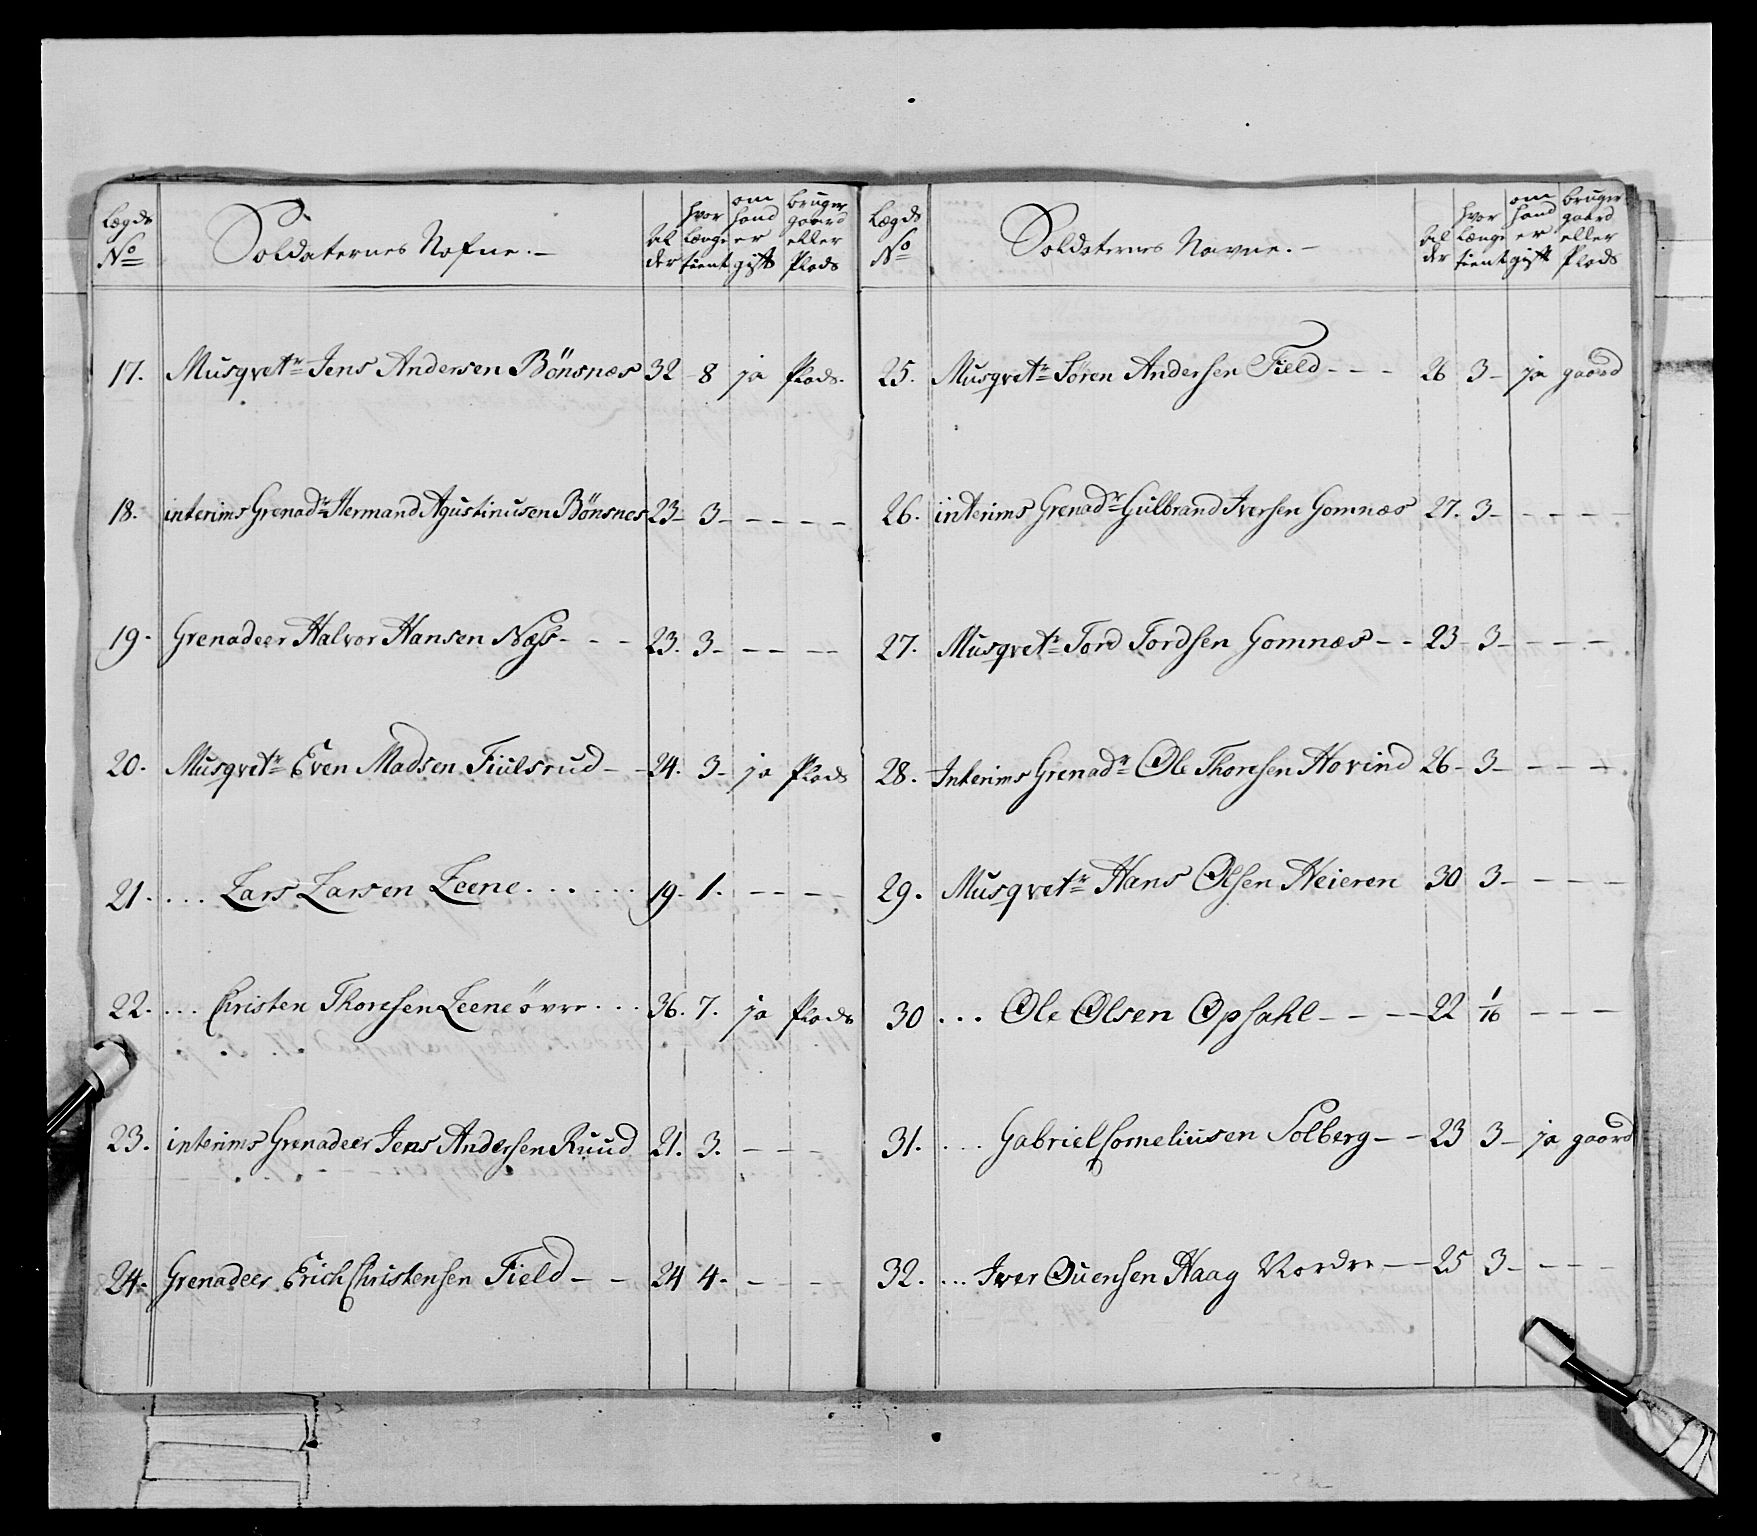 Lægds No
Soldaternes Nafne.
Al der
hvor længe tient
om hand er gift
bruger gaard eller Plads
17. Musqvetr Jens Andersen Bönsnæs 32 - 8 ja Plads.
18. interims Grenadr Hermand Agustinusen Bönsnes 23 - 3 - - - - -
19. Grenadeer Halvor Hansen Næss - - - 23. 3 - - - - -
20. Musqvetr Even Madsen Fiulsrud - - 24. 3 - ja Plads
21. ... Lars Larsen Leene ...... 19. 1. - - - -
22. ... Christen Thoresen Leene övre ... 36. 7. ja Plads
23. interims Grenadeer Jens Andersen Ruud 21. 3. - - - -
24. Grenadeer Erich Christensen Field - - 24 4. - - -
Lægds No
Soldaternes Navne. -
Al der
hvor længe tient
om hand er gift
bruger gaard eller Plads
25. Musqvetr Sören Andersen Field - - - 26 3 - ja gaard
26. interims Grenadr Gulbrand Iversen Gomnæs 27. 3 - - - - -
27. Musqvetr Tord Tordsen Gomnæs - - 23 3 - - - - -
28. Interims Grenadr Ole Thoresen Hovind 26 - 3 - - - - -
29. Musqvetr Hans Olsen Heieren 30 3 - - - - -
30 ... Ole Olsen Opsahl - - - - 22 1/16 - - -
31. ... Gabriel Corneliusen Solberg - - 23 3 - ja gaard
32. ... Iver Ouensen Haag Nordre - - 25 3 - - - -